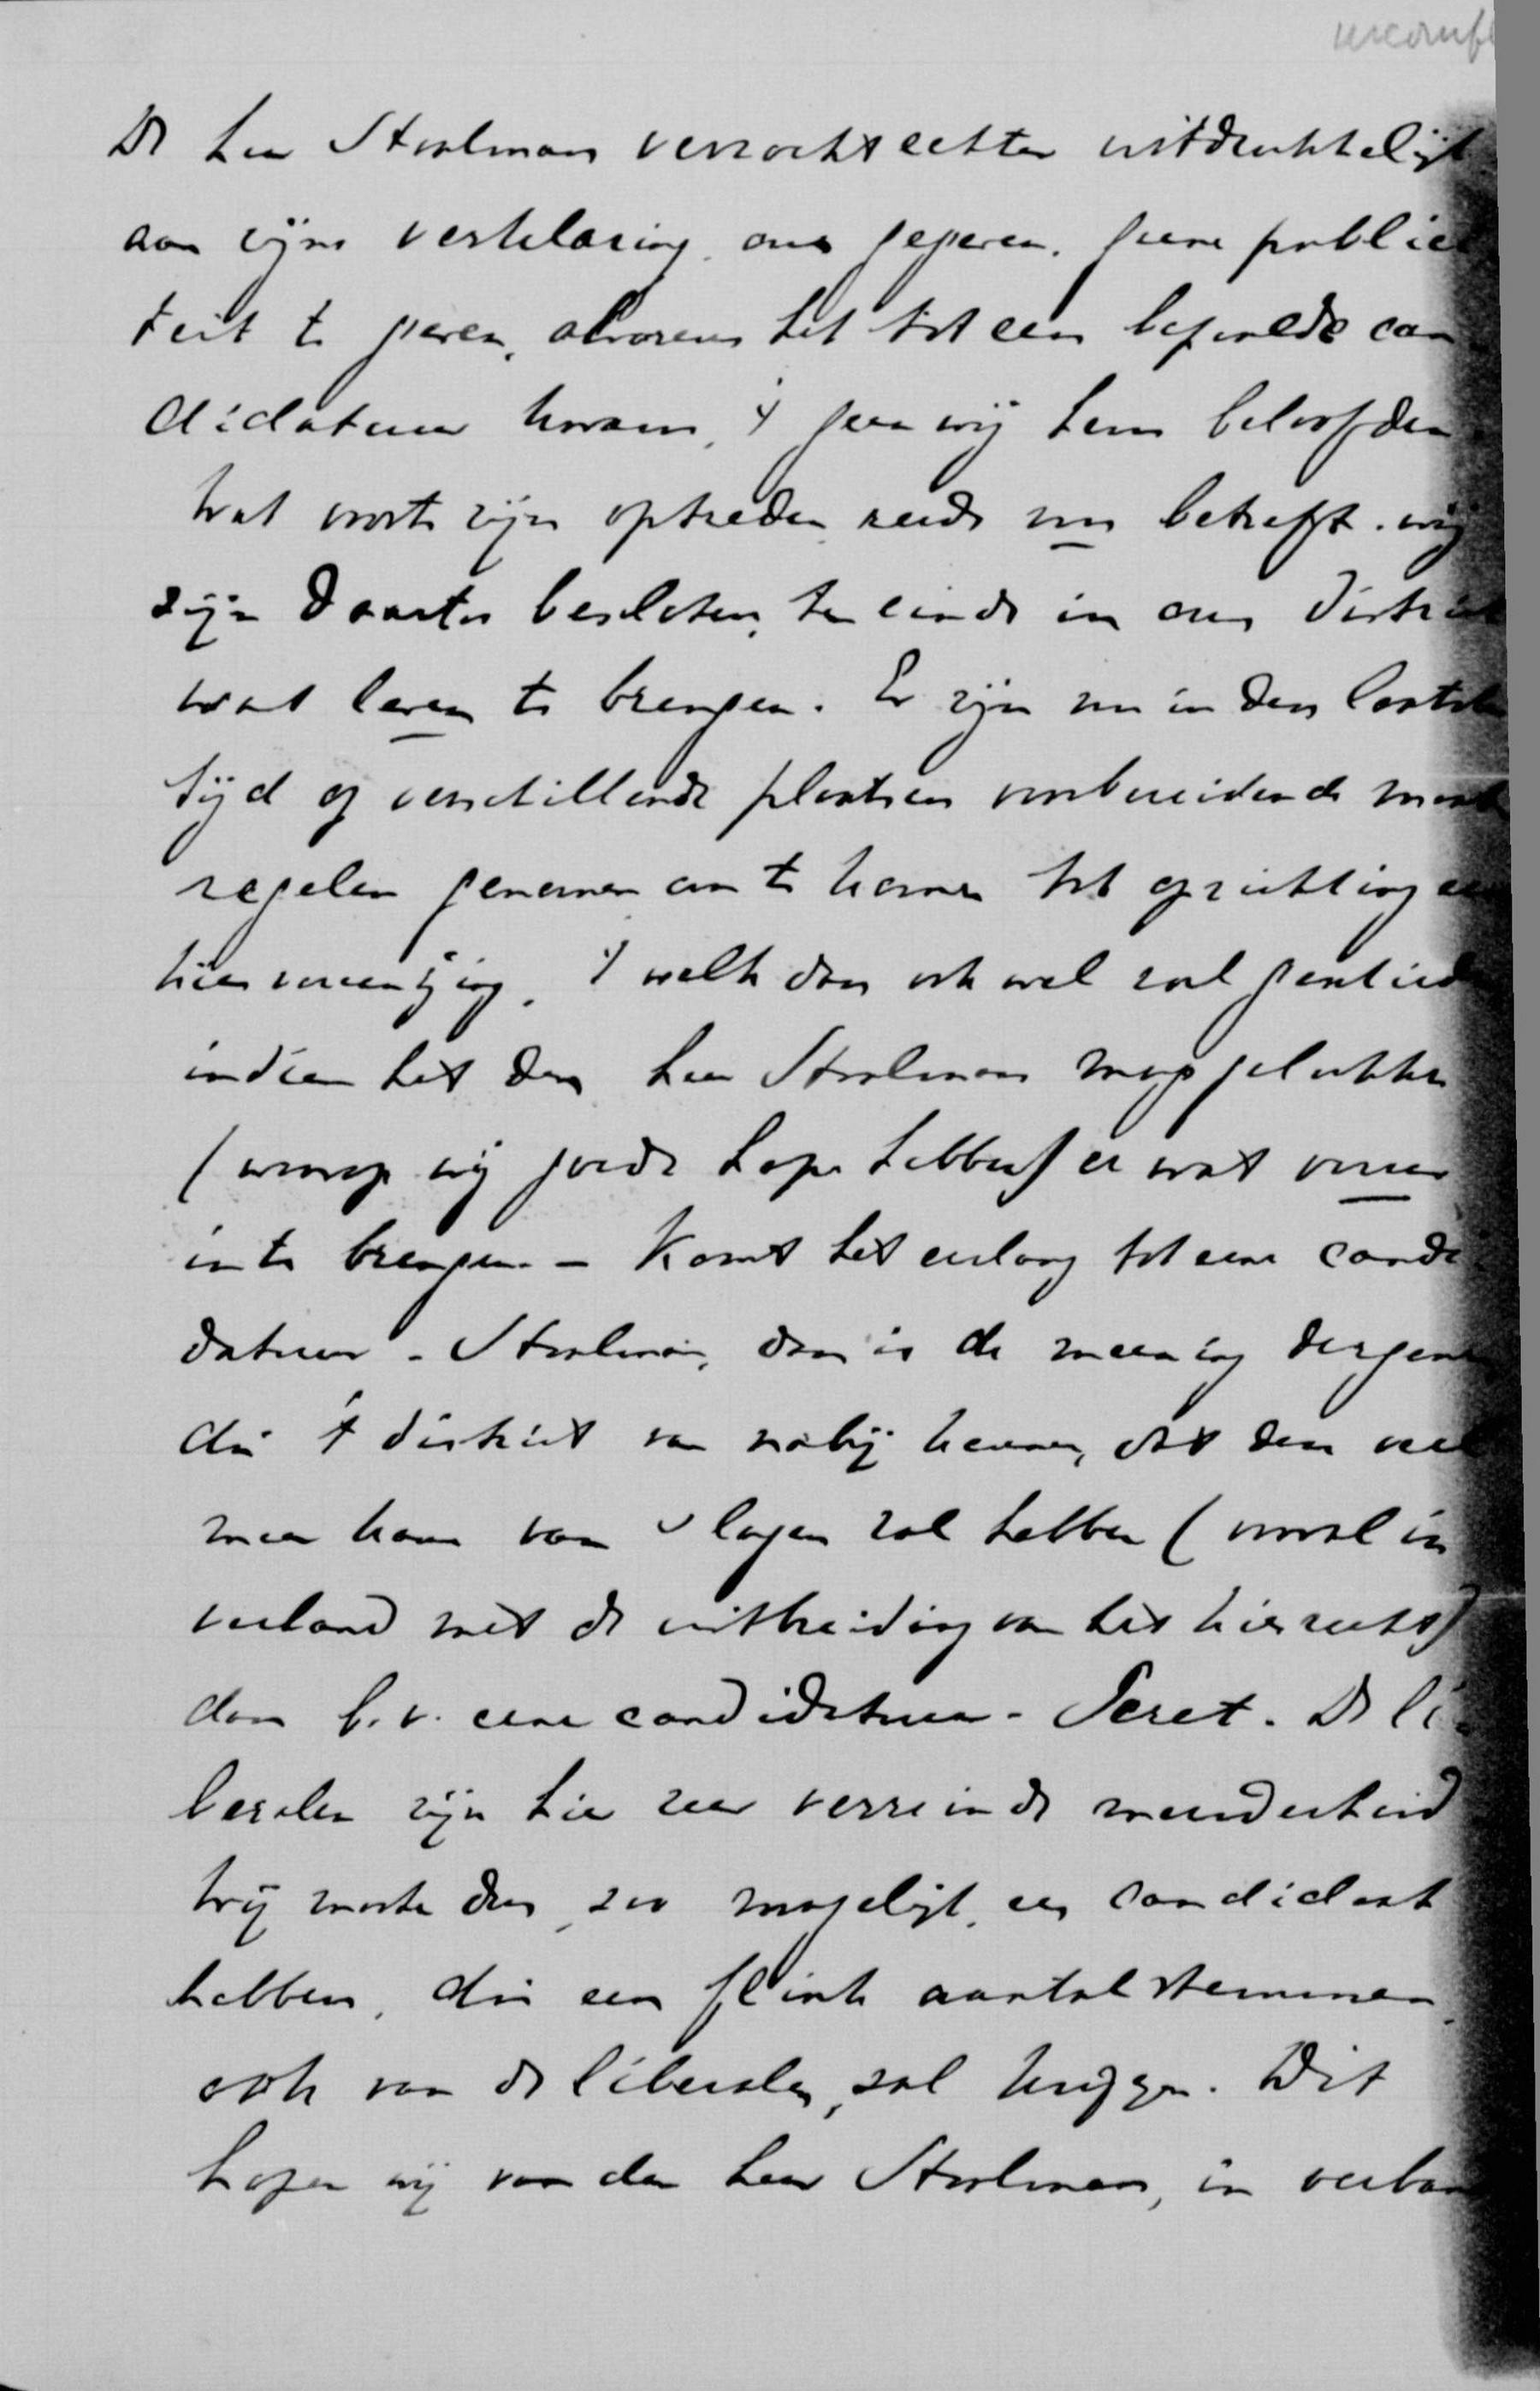 De heer Staalman verzocht echter uitdrukkelijk
aan zijne verklaring, ons gegeven, geene publici
teit te geven, alvorens het tot een bepaalde can
didatuur kwam, 't geen wij hem beloofden.
Wat voorts zijn optreden reeds nu betreft. wij
zijn daartoe besloten, ten einde in ons distri
wat leven te brengen. Er zijn nu in den laatste
tijd op verschillende plaatsen voorbereidende maat
regelen genomen om te komen tot oprichting ee
kiesvereeniging, 't welk dan ook wel zal geschied
indien het den heer Staalman mag gelukken
(waarop wij goede hope hebben) er wat vuur
in te brengen. – Komt het eerlang tot eene candi
datuur - Staalman, dan is de meening dergene
die 't district van nabij kennen, dat deze veel
meer kans van slagen zal hebben (vooral in
verband met de uitbreiding van het kiesrecht)
dan b.v. eene candidatuur - Seret. De li-
beralen zijn hier zeer verreinde meerderheid
Wij moeten dus, zoo mogelijk, een candidaat
hebben, die een flink aantal stemmen,
ook van de liberalen, zal krijgen. Dit
hopen wij van den heer Staalman, in verban